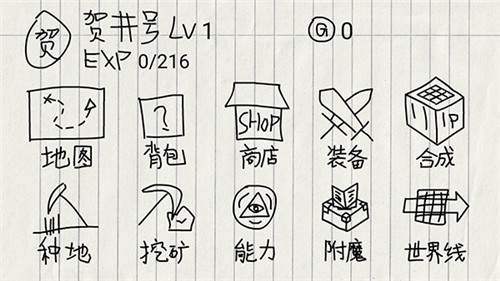 贺 贺井号 LV 1 G 0
EXP 0/216
? SHOP
地图 背包 商店 装备 合成
种地 挖矿 能力 附魔 世界线